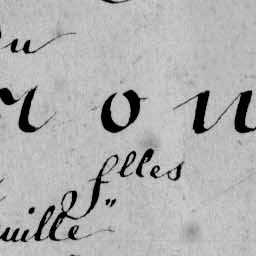 du
r o u
flles
uille"